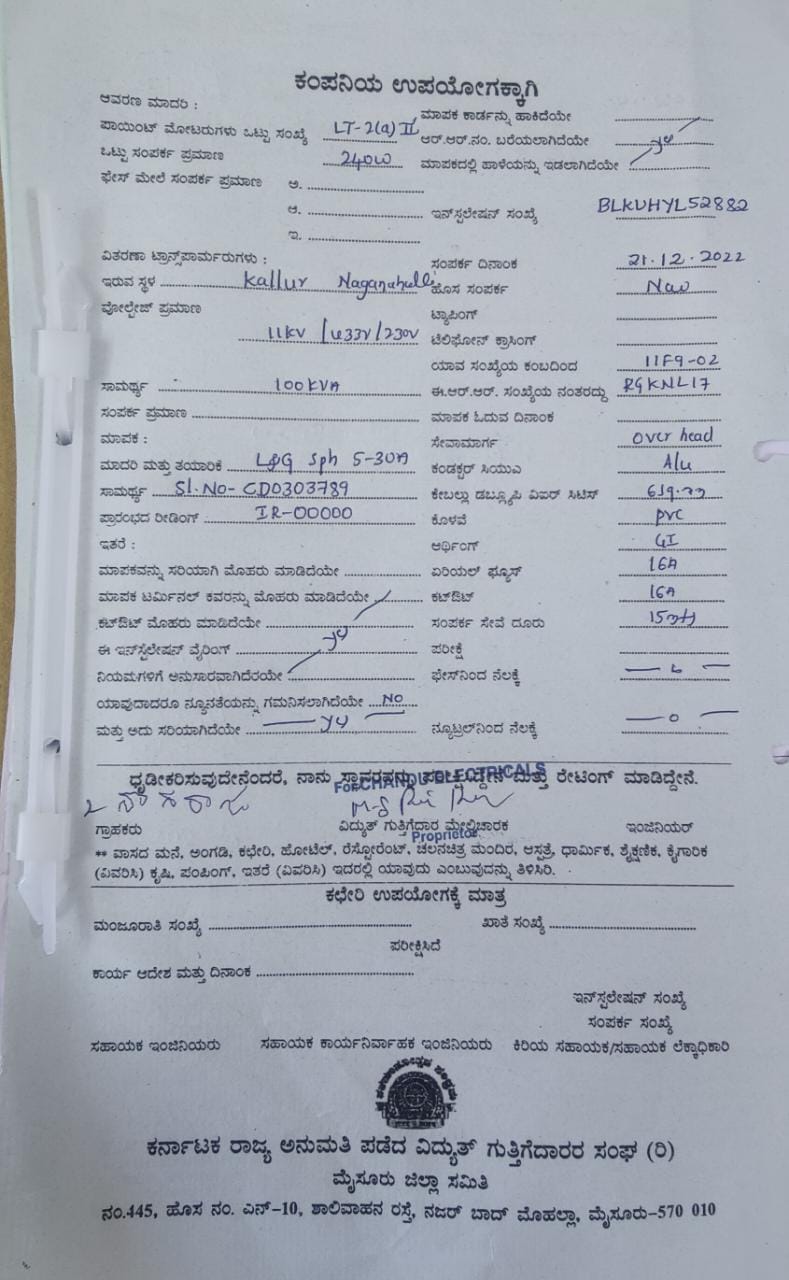 ಕಂಪನಿಯ ಉಪಯೋಗಕ್ಕಾಗಿ
ಆವರಣ ಮಾದರಿ :
ಮಾಪಕ ಕಾರ್ಡನ್ನು ಹಾಕಿದೆಯೇ
ಪಾಯಿಂಟ್ ಮೋಟರುಗಳು ಒಟ್ಟು ಸಂಖ್ಯೆ LT-2(a) II ಆರ್.ಆರ್.ನಂ. ಬರೆಯಲಾಗಿದೆಯೇ
ಒಟ್ಟು ಸಂಪರ್ಕ ಪ್ರಮಾಣ 240W ಮಾಪಕದಲ್ಲಿ ಹಾಳೆಯನ್ನು ಇಡಲಾಗಿದೆಯೇ
ಫೇಸ್ ಮೇಲೆ ಸಂಪರ್ಕ ಪ್ರಮಾಣ ಅ.
ಆ. ಇನ್‌ಸ್ಟಲೇಷನ್ ಸಂಖ್ಯೆ BLKUHYL52882
ಇ.
ವಿತರಣಾ ಟ್ರಾನ್ಸ್‌ಪಾರ್ಮರುಗಳು : ಸಂಪರ್ಕ ದಿನಾಂಕ 21.12.2022
ಇರುವ ಸ್ಥಳ Kallur Naganahalli ಹೊಸ ಸಂಪರ್ಕ
ವೋಲ್ಟೇಜ್ ಪ್ರಮಾಣ ಟ್ಯಾಪಿಂಗ್
11KV / 433V / 230V ಟೆಲಿಫೋನ್ ಕ್ರಾಸಿಂಗ್
ಯಾವ ಸಂಖ್ಯೆಯ ಕಂಬದಿಂದ 11F9-02
ಸಾಮರ್ಥ್ಯ 100KVA ಈ.ಆರ್.ಆರ್. ಸಂಖ್ಯೆಯ ನಂತರದ್ದು RGKNL17
ಸಂಪರ್ಕ ಪ್ರಮಾಣ ಮಾಪಕ ಓದುವ ದಿನಾಂಕ
ಮಾಪಕ : ಸೇವಾಮಾರ್ಗ over head
ಮಾದರಿ ಮತ್ತು ತಯಾರಿಕೆ L&G Sph 5-30A ಕಂಡಕ್ಟರ್ ಸಿಯುಎ Alu
ಸಾಮರ್ಥ್ಯ Sl.No- CD0303789 ಕೇಬಲ್ಲು ಡಬ್ಲ್ಯೂಪಿ ವಿಐರ್ ಸಿಟಿಸ್
ಪ್ರಾರಂಭದ ರೀಡಿಂಗ್ IR-00000 ಕೊಳವೆ pvc
ಇತರೆ : ಆರ್ಥಿಂಗ್ GI
ಮಾಪಕವನ್ನು ಸರಿಯಾಗಿ ಮೊಹರು ಮಾಡಿದೆಯೇ ಏರಿಯಲ್ ಫ್ಯೂಸ್ 16A
ಮಾಪಕ ಟರ್ಮಿನಲ್ ಕವರನ್ನು ಮೊಹರು ಮಾಡಿದೆಯೇ ಕಟ್‌ಔಟ್ 16A
ಕಟ್‌ಔಟ್ ಮೊಹರು ಮಾಡಿದೆಯೇ ಸಂಪರ್ಕ ಸೇವೆ ದೂರು
ಈ ಇನ್‌ಸ್ಟಲೇಷನ್ ವೈರಿಂಗ್ ಪರೀಕ್ಷೆ
ನಿಯಮಗಳಿಗೆ ಅನುಸಾರವಾಗಿದೆರಯೇ ಫೇಸ್‌ನಿಂದ ನೆಲಕ್ಕೆ
ಯಾವುದಾದರೂ ನ್ಯೂನತೆಯನ್ನು ಗಮನಿಸಲಾಗಿದೆಯೇ NO
ಮತ್ತು ಅದು ಸರಿಯಾಗಿದೆಯೇ ನ್ಯೂಟ್ರಲ್‌ನಿಂದ ನೆಲಕ್ಕೆ — 0 —
ಧೃಡೀಕರಿಸುವುದೇನೆಂದರೆ, ನಾನು ಸ್ಥಾವರವನ್ನು ಪರೀಕ್ಷಿಸಿದ್ದೇನೆ ಮತ್ತು ರೇಟಿಂಗ್ ಮಾಡಿದ್ದೇನೆ.
ನಾಗರಾಜು
ಗ್ರಾಹಕರು ವಿದ್ಯುತ್ ಗುತ್ತಿಗೆದಾರ ಮೇಲ್ವಿಚಾರಕ ಇಂಜಿನಿಯರ್
Proprietor
** ವಾಸದ ಮನೆ, ಅಂಗಡಿ, ಕಛೇರಿ, ಹೋಟೆಲ್, ರೆಸ್ಟೋರೆಂಟ್, ಚಲನಚಿತ್ರ ಮಂದಿರ, ಆಸ್ಪತ್ರೆ, ಧಾರ್ಮಿಕ, ಶೈಕ್ಷಣಿಕ, ಕೈಗಾರಿಕ
(ವಿವರಿಸಿ) ಕೃಷಿ, ಪಂಪಿಂಗ್, ಇತರೆ (ವಿವರಿಸಿ) ಇದರಲ್ಲಿ ಯಾವುದು ಎಂಬುವುದನ್ನು ತಿಳಿಸಿರಿ.
ಕಛೇರಿ ಉಪಯೋಗಕ್ಕೆ ಮಾತ್ರ
ಮಂಜೂರಾತಿ ಸಂಖ್ಯೆ ಖಾತೆ ಸಂಖ್ಯೆ
ಪರೀಕ್ಷಿಸಿದೆ
ಕಾರ್ಯ ಆದೇಶ ಮತ್ತು ದಿನಾಂಕ
ಇನ್‌ಸ್ಟಲೇಷನ್ ಸಂಖ್ಯೆ
ಸಂಪರ್ಕ ಸಂಖ್ಯೆ
ಸಹಾಯಕ ಇಂಜಿನಿಯರು ಸಹಾಯಕ ಕಾರ್ಯನಿರ್ವಾಹಕ ಇಂಜಿನಿಯರು ಕಿರಿಯ ಸಹಾಯಕ/ಸಹಾಯಕ ಲೆಕ್ಕಾಧಿಕಾರಿ
ಕರ್ನಾಟಕ ರಾಜ್ಯ ಅನುಮತಿ ಪಡೆದ ವಿದ್ಯುತ್ ಗುತ್ತಿಗೆದಾರರ ಸಂಘ (ರಿ)
ಮೈಸೂರು ಜಿಲ್ಲಾ ಸಮಿತಿ
ನಂ.445, ಹೊಸ ನಂ. ಎನ್-10, ಶಾಲಿವಾಹನ ರಸ್ತೆ, ನಜರ್ ಬಾದ್ ಮೊಹಲ್ಲಾ, ಮೈಸೂರು-570 010